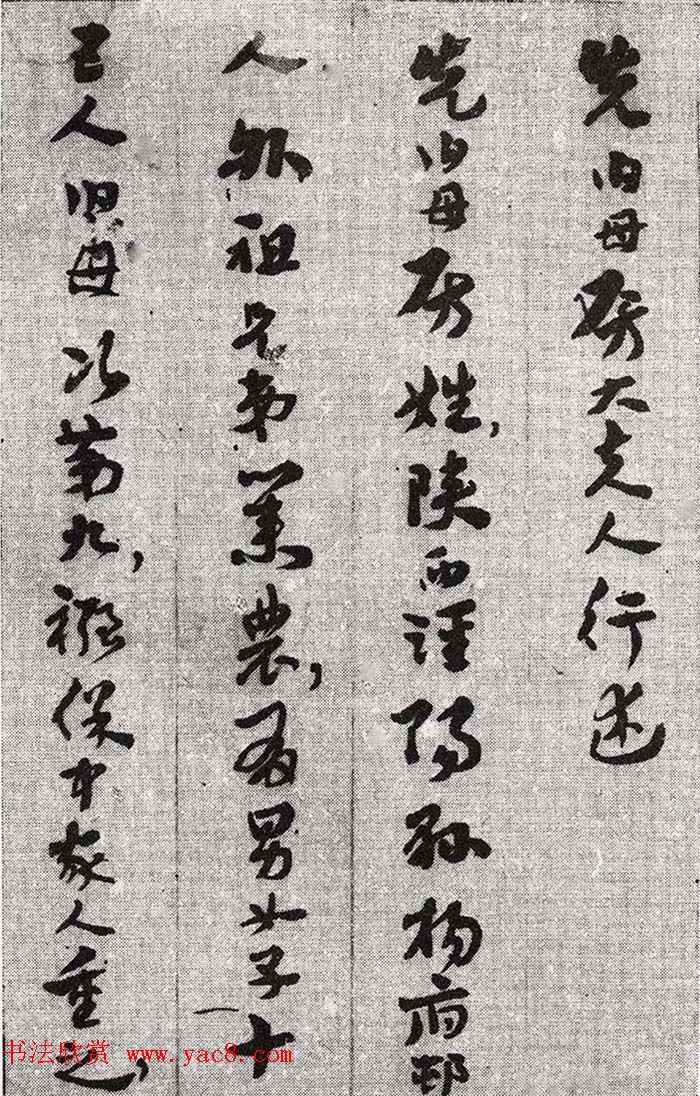 先伯母房太夫人行述
先伯母房姓,陕西泾阳孙杨府邨
人外祖兄弟業農,有男女子十
三人伯母次第九,襁保中家人重之,
书法欣赏 www.yac8.com